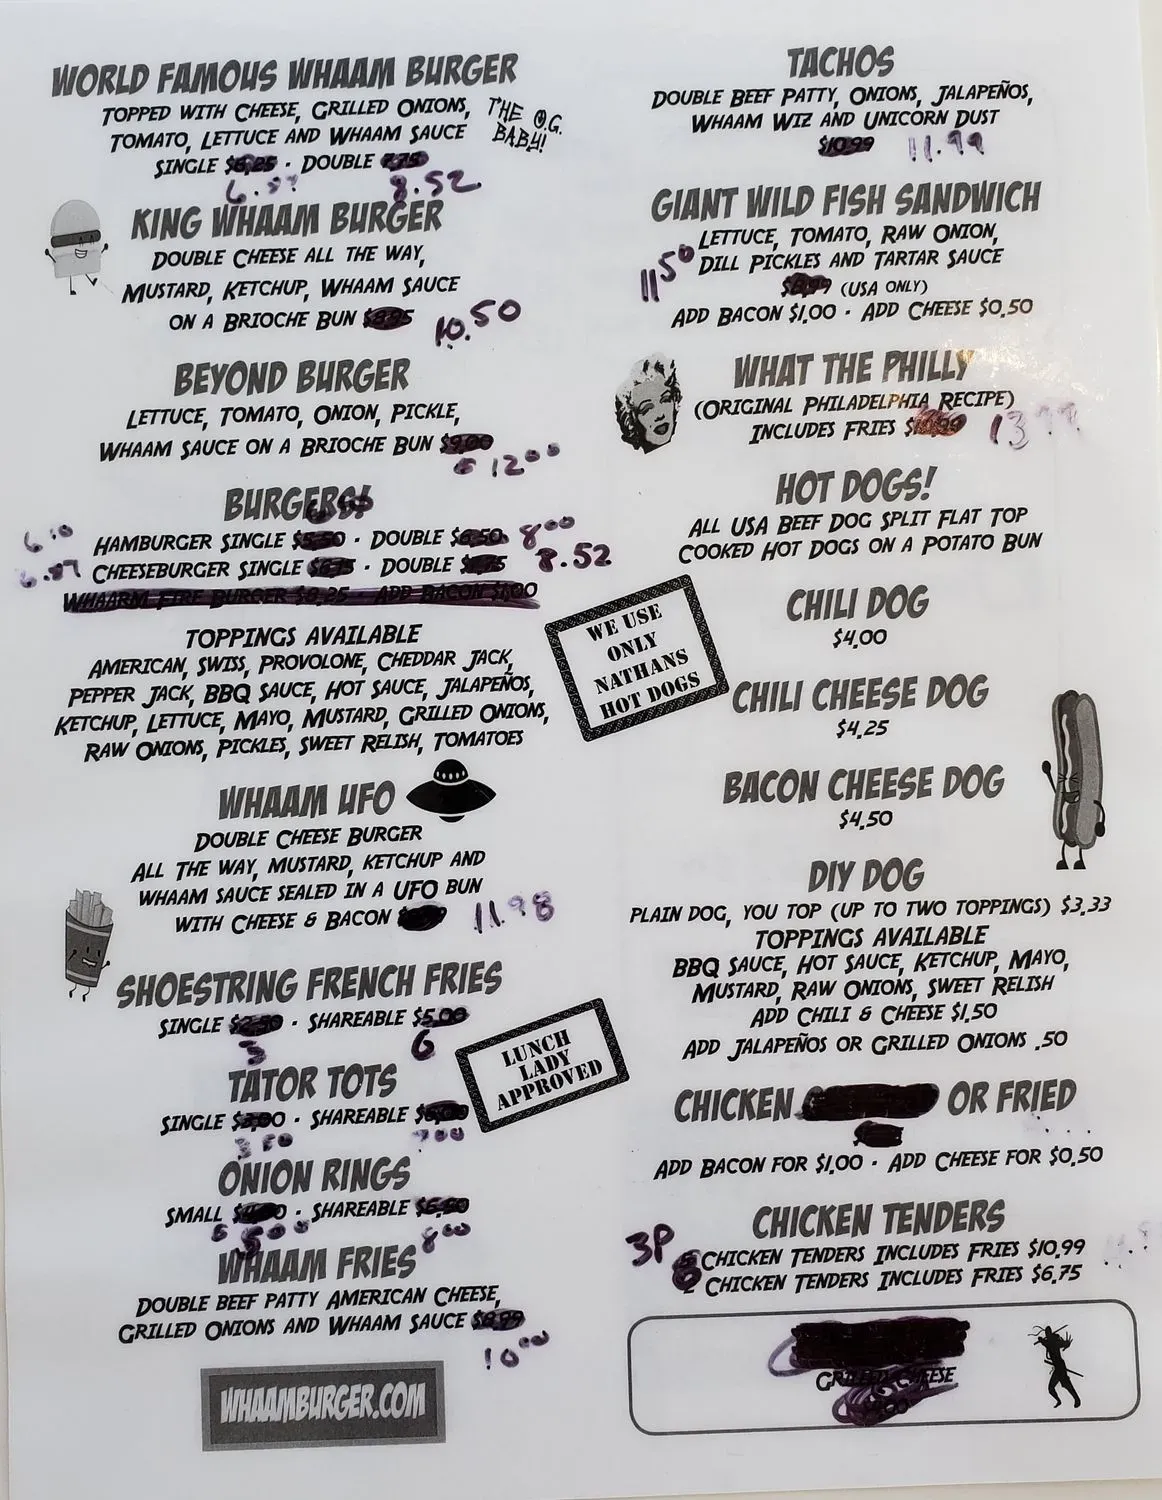 WORLD FAMOUS WHAAM BURGER
TOPPED WITH CHEESE, GRILLED ONIONS,
TOMATO, LETTUCE AND WHAAM SAUCE
THE O.G.
BABY!
SINGLE $6.25 · DOUBLE 7.75
8.52
KING WHAAM BURGER
DOUBLE CHEESE ALL THE WAY,
MUSTARD, KETCHUP, WHAAM SAUCE
ON A BRIOCHE BUN $8.95 10.50
BEYOND BURGER
LETTUCE, TOMATO, ONION, PICKLE,
WHAAM SAUCE ON A BRIOCHE BUN $9.00
12 00
BURGERS!
6.10 HAMBURGER SINGLE $5.50 · DOUBLE $6.50 8 00
CHEESEBURGER SINGLE · DOUBLE 8.52
WHAARM FIRE BURGER $8.25 · ADD BACON $1.00
TOPPINGS AVAILABLE
AMERICAN, SWISS, PROVOLONE, CHEDDAR JACK,
PEPPER JACK, BBQ SAUCE, HOT SAUCE, JALAPEÑOS,
KETCHUP, LETTUCE, MAYO, MUSTARD, GRILLED ONIONS,
RAW ONIONS, PICKLES, SWEET RELISH, TOMATOES
WHAAM UFO
DOUBLE CHEESE BURGER
ALL THE WAY, MUSTARD, KETCHUP AND
WHAAM SAUCE SEALED IN A UFO BUN
WITH CHEESE & BACON 11.98
SHOESTRING FRENCH FRIES
SINGLE $2.50 · SHAREABLE $5.00
3 6
TATOR TOTS
SINGLE $3.00 · SHAREABLE
3 50 7 00
ONION RINGS
SMALL · SHAREABLE
8 00
WHAAM FRIES
DOUBLE BEEF PATTY AMERICAN CHEESE,
GRILLED ONIONS AND WHAAM SAUCE $8.99
10 00
WHAAMBURGER.COM
WE USE
ONLY
NATHANS
HOT DOGS
LUNCH
LADY
APPROVED
TACHOS
DOUBLE BEEF PATTY, ONIONS, JALAPEÑOS,
WHAAM WIZ AND UNICORN DUST
$10.99 11.99
GIANT WILD FISH SANDWICH
LETTUCE, TOMATO, RAW ONION,
11 50 DILL PICKLES AND TARTAR SAUCE
$8.99 (USA ONLY)
ADD BACON $1.00 · ADD CHEESE $0.50
WHAT THE PHILLY
(ORIGINAL PHILADELPHIA RECIPE)
INCLUDES FRIES $10.99 13 99
HOT DOGS!
ALL USA BEEF DOG SPLIT FLAT TOP
COOKED HOT DOGS ON A POTATO BUN
CHILI DOG
$4.00
CHILI CHEESE DOG
$4.25
BACON CHEESE DOG
$4.50
DIY DOG
PLAIN DOG, YOU TOP (UP TO TWO TOPPINGS) $3.33
TOPPINGS AVAILABLE
BBQ SAUCE, HOT SAUCE, KETCHUP, MAYO,
MUSTARD, RAW ONIONS, SWEET RELISH
ADD CHILI & CHEESE $1.50
ADD JALAPEÑOS OR GRILLED ONIONS .50
CHICKEN OR FRIED
ADD BACON FOR $1.00 · ADD CHEESE FOR $0.50
CHICKEN TENDERS
3P CHICKEN TENDERS INCLUDES FRIES $10.99
CHICKEN TENDERS INCLUDES FRIES $6.75
GRILLED CHEESE